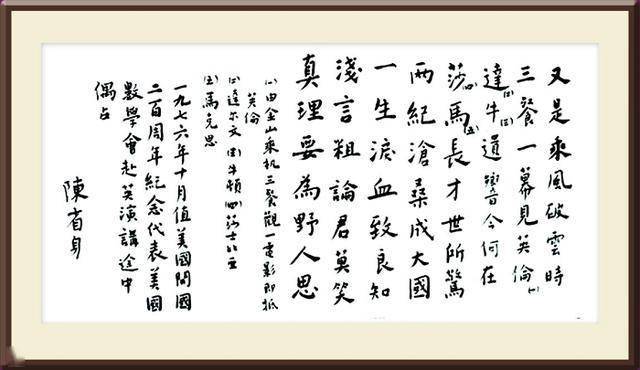 又是乘風破雲時
三餐一幕見英倫(一)
達(二)牛(三)遺響今何在
莎(四)馬(五)長才世所驚
兩紀滄桑成大國
一生淚血致良知
淺言粗論君莫笑
真理要為野人思
(一)由金山乘机三餐觀一電影即抵
英倫
(二)達尔文(三)牛頓(四)莎士比亚
(五)馬克思
一九七六年十月值美國開國
二百周年紀念代表美國
數學會赴英演講途中
偶占
陳省身